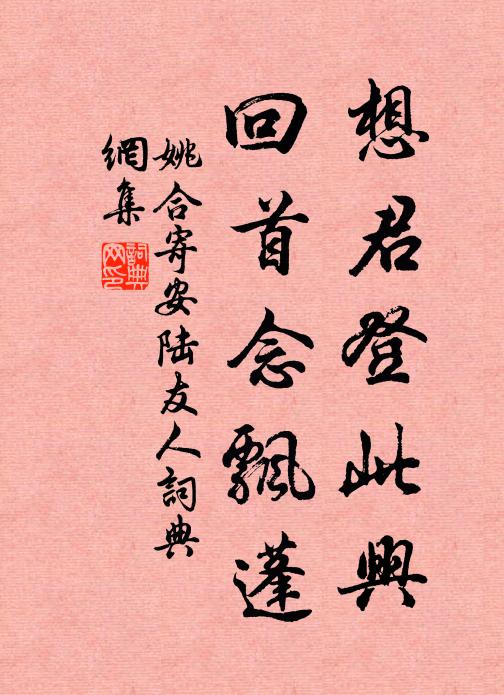 想君登此興
回首念飄蓬
姚合寄安陸友人詞典
網集
詞典
网印